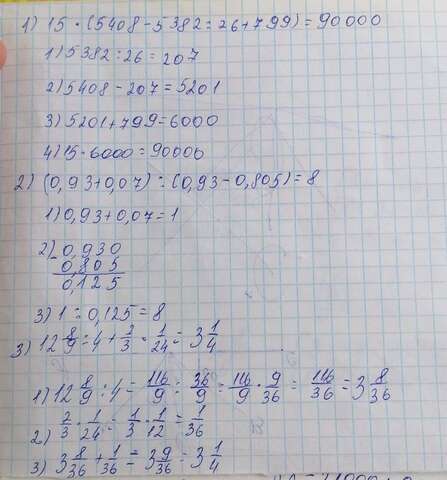 1) 15 · (5408 - 5382 : 26 + 799) = 90000
1) 5382 : 26 = 207
2) 5408 - 207 = 5201
3) 5201 + 799 = 6000
4) 15 · 6000 = 90000
2) (0,93 + 0,07) : (0,93 - 0,805) = 8
1) 0,93 + 0,07 = 1
2) 0,930
- 0,805
0,125
3) 1 : 0,125 = 8
3) 12 8/9 : 4 + 2/3 · 1/24 = 3 1/4
1) 12 8/9 : 4 = 116/9 : 36/9 = 116/9 · 9/36 = 116/36 = 3 8/36
2) 2/3 · 1/24 = 1/3 · 1/12 = 1/36
3) 3 8/36 + 1/36 = 3 9/36 = 3 1/4